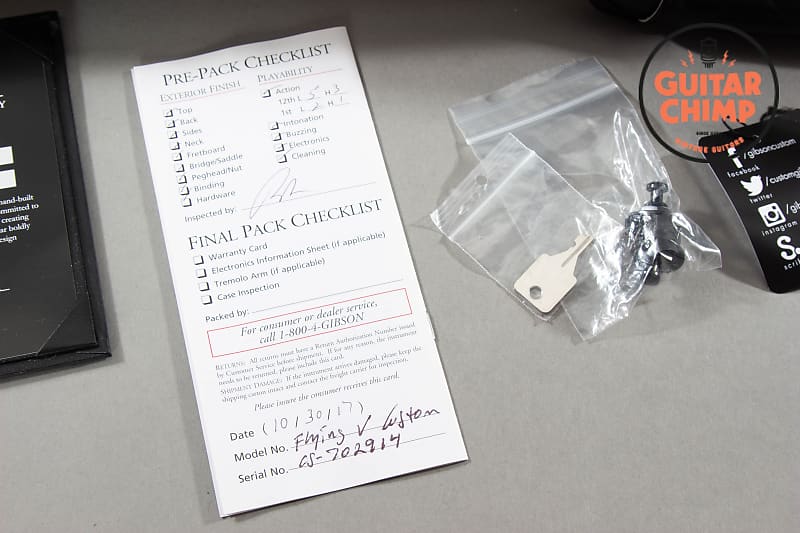 PRE-PACK CHECKLIST
EXTERIOR FINISH
PLAYABILITY
Top
Back
Sides
Neck
Fretboard
Bridge/Saddle
Peghead/Nut
Binding
Hardware
Action
12th L 5 H 3
1st L 2 H 1
Intonation
Buzzing
Electronics
Cleaning
Inspected by:
FINAL PACK CHECKLIST
Warranty Card
Electronics Information Sheet (if applicable)
Tremolo Arm (if applicable)
Case Inspection
Packed by:
For consumer or dealer service,
call 1-800-4-GIBSON
RETURNS: All returns must have a Return Authorization Number issued
by Customer Service before shipment. If for any reason, the instrument
needs to be returned, please include this card.
SHIPMENT DAMAGE: If the instrument arrives damaged, please keep the
shipping carton intact and contact the freight carrier for inspection.
Please insure the consumer receives this card.
Date (10/30/17)
Model No. Flying V Custom
Serial No. CS-702914
hand-built
creating
boldly
design
GUITAR
CHIMP
SINCE
VINTAGE GUITARS
/gibsoncustom
facebook
twitter
instagram